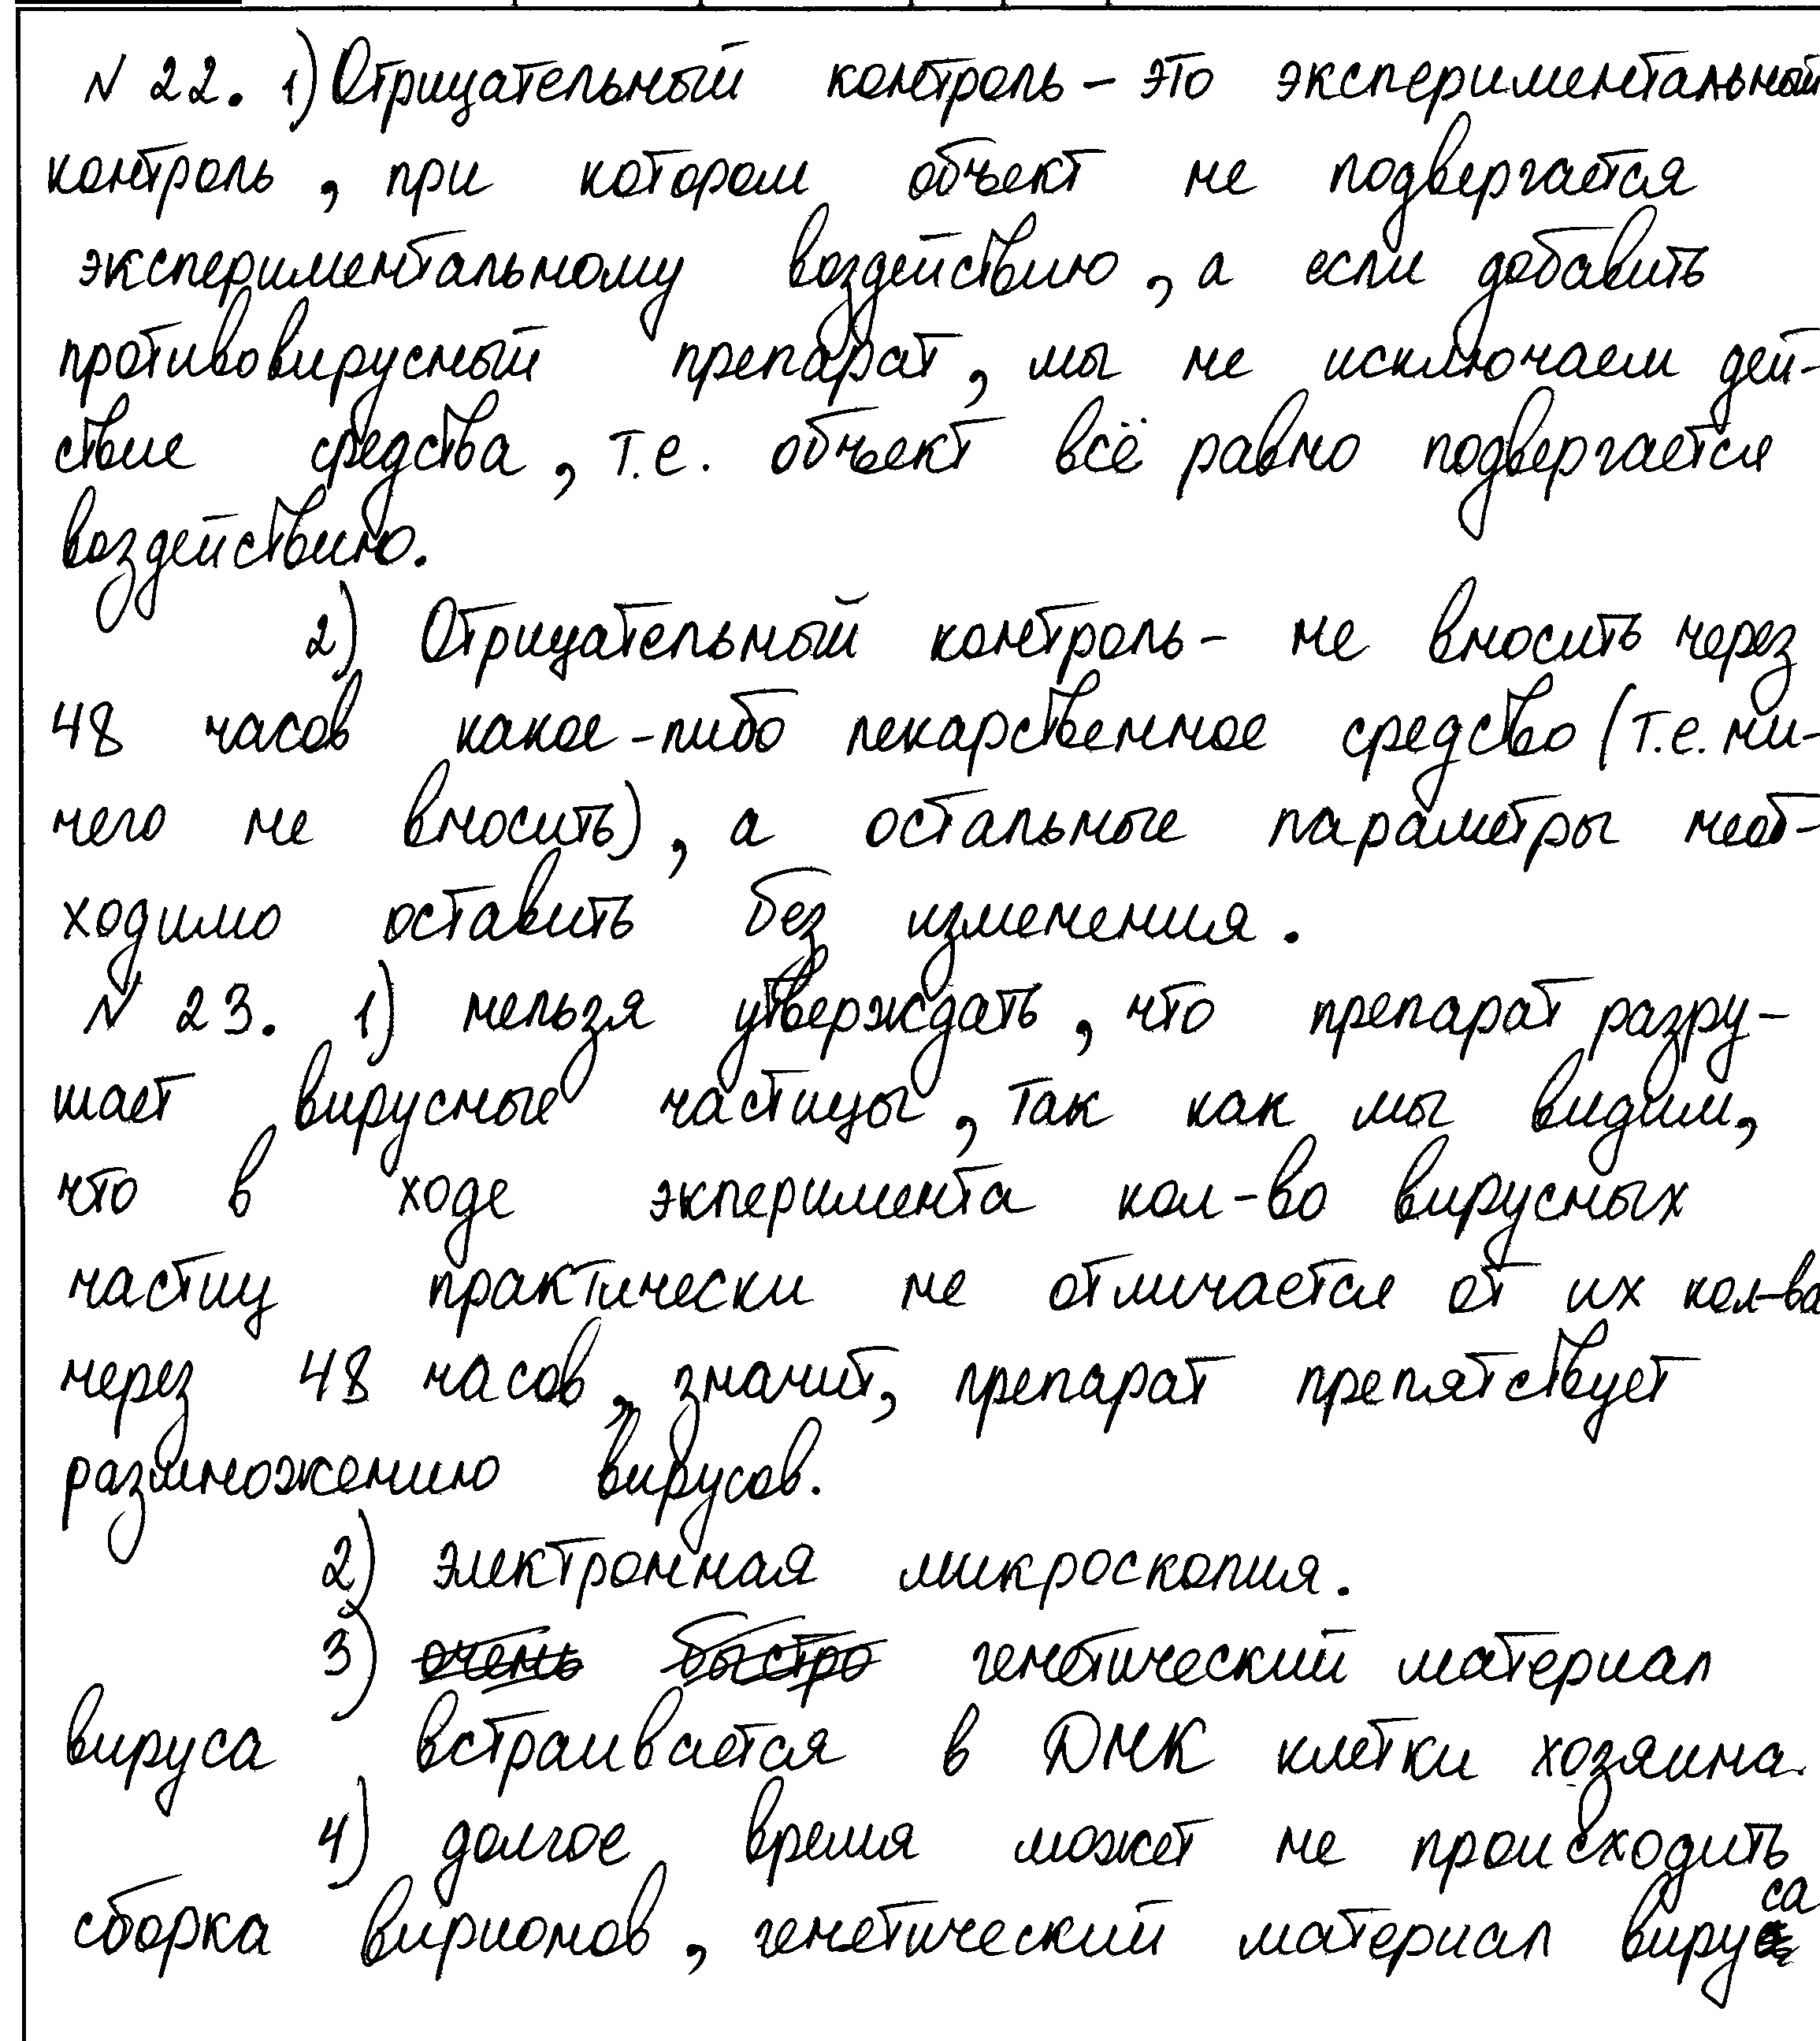 N 22. 1) Отрицательный контроль – это экспериментальный
контроль, при котором объект не подвергается
экспериментальному воздействию, а если добавить
противовирусный препарат, мы не исключаем дей-
ствие средства, т.е. объект всё равно подвергается
воздействию.
2) Отрицательный контроль – не вносить через
48 часов какое-либо лекарственное средство (т.е. ни-
чего не вносить), а остальные параметры необ-
ходимо оставить без изменения.
N 23. 1) нельзя утверждать, что препарат разру-
шает вирусные частицы, так как мы видим,
что в ходе экперимента кол-во вирусных
частиц практически не отличается от их кол-ва
через 48 часов, значит, препарат препятствует
размножению вирусов.
2) электронная микроскопия.
3) очень быстро генетический материал
вируса встраивается в ДНК клетки хозяина.
4) долгое время может не происходить
сборка вирионов, генетический материал вируса